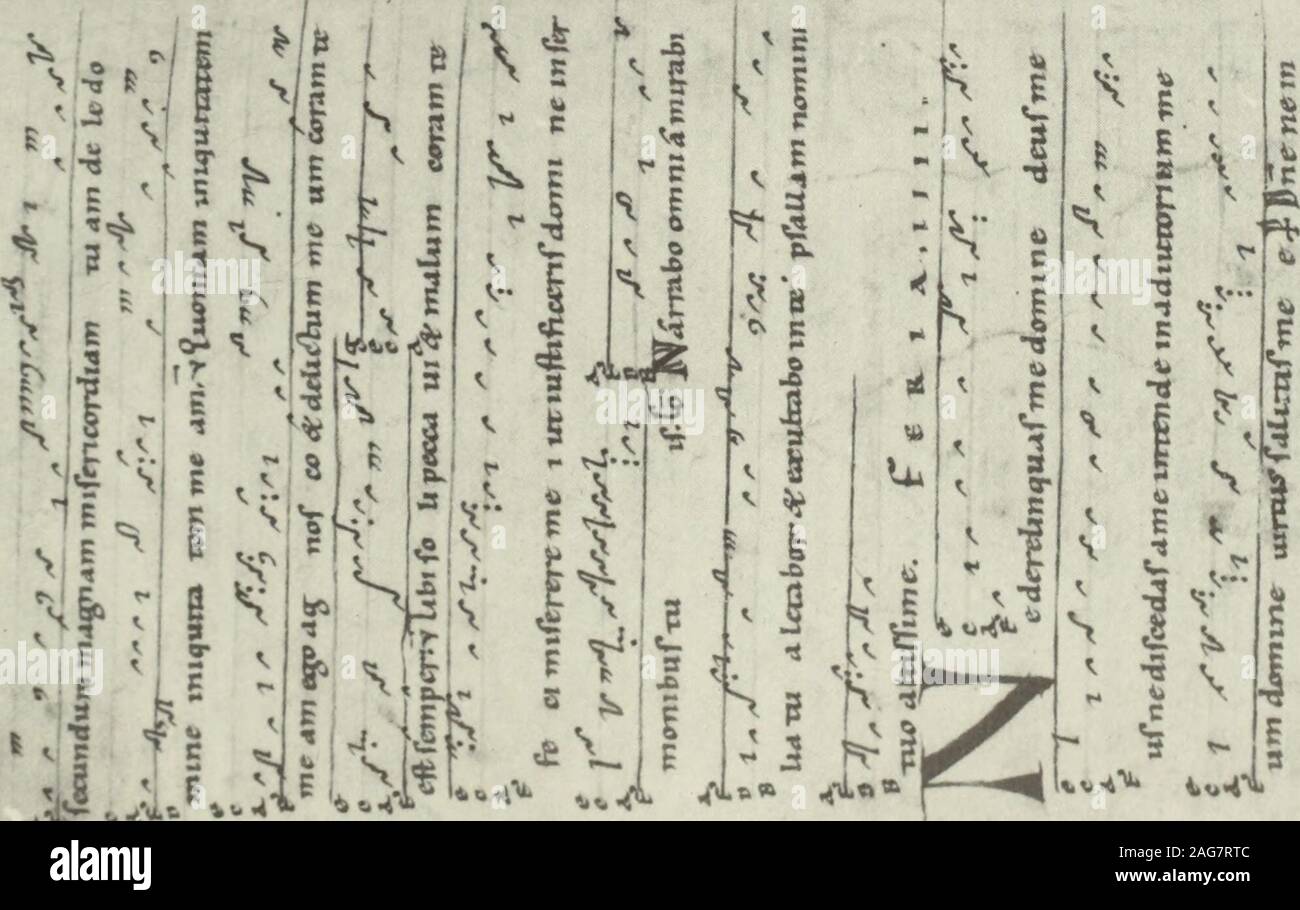 ſecundum magnam miſericordiam tu am de le do
mine iniquita tem me am. Quoniam iniquitatem
me am ego ag noſ co & delictum me um coram te
eſt ſemper; tibi ſo li pecca ui & malum coram te
fe ci miſerere me i ut iuſtificeriſ domi ne in ſer
monibuſ tu iſ. Narrabo omnia mirabi
lia tu a letabor & exultabo in te i pſallam nomini
tuo altiſſime. FERIA.IIII.
Ne derelinquaſ me domine deuſ me
uſ ne diſcedaſ a me intende in adiutorium me
um domine uirtuſ ſalutiſ me e. Dn̄e ne in
alamy
Image ID: 2AG7RTC
www.alamy.com